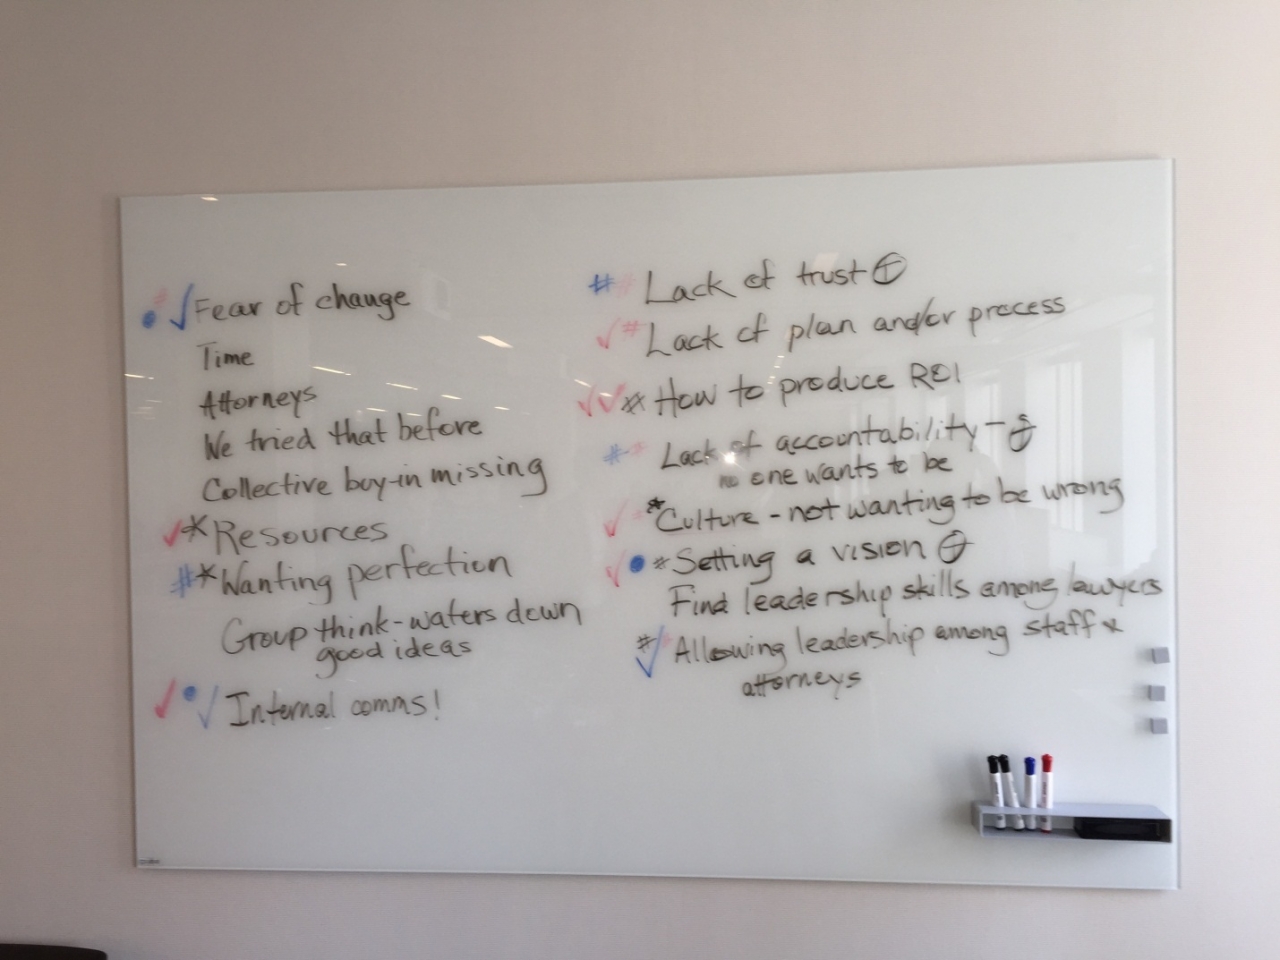 Fear of change
Time
Attorneys
We tried that before
Collective buy-in missing
✓*Resources
#*Wanting perfection
Group think-waters down
good ideas
✓•✓ Internal comms!
## Lack of trust
✓# Lack of plan and/or process
✓✓* How to produce ROI
Lack of accountability -
no one wants to be
✓ *Culture - not wanting to be wrong
✓•* Setting a vision
Find leadership skills among lawyers
#✓ Allowing leadership among staff x
attorneys